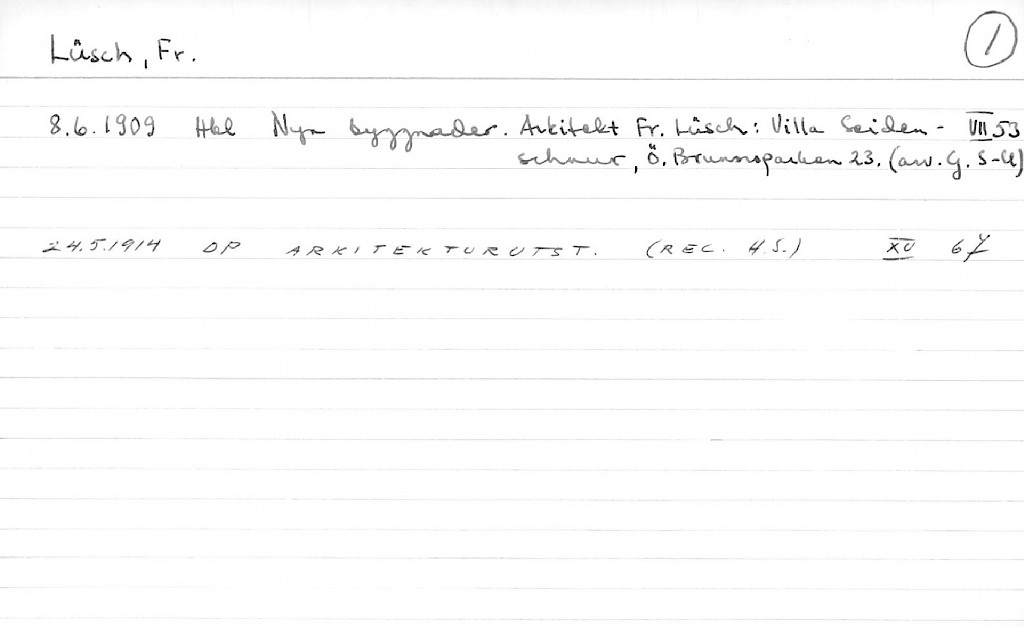 Lüsch, Fr. 1
8.6.1909 Hbl Nya byggnader. Arkitekt Fr. Lüsch: Villa Seiden- VII 53
schnur, Ö. Brunnsparken 23. (arv. G. S-U)
24.5.1914 DP ARKITEKTURUTST. (REC. H.S.) XV 67